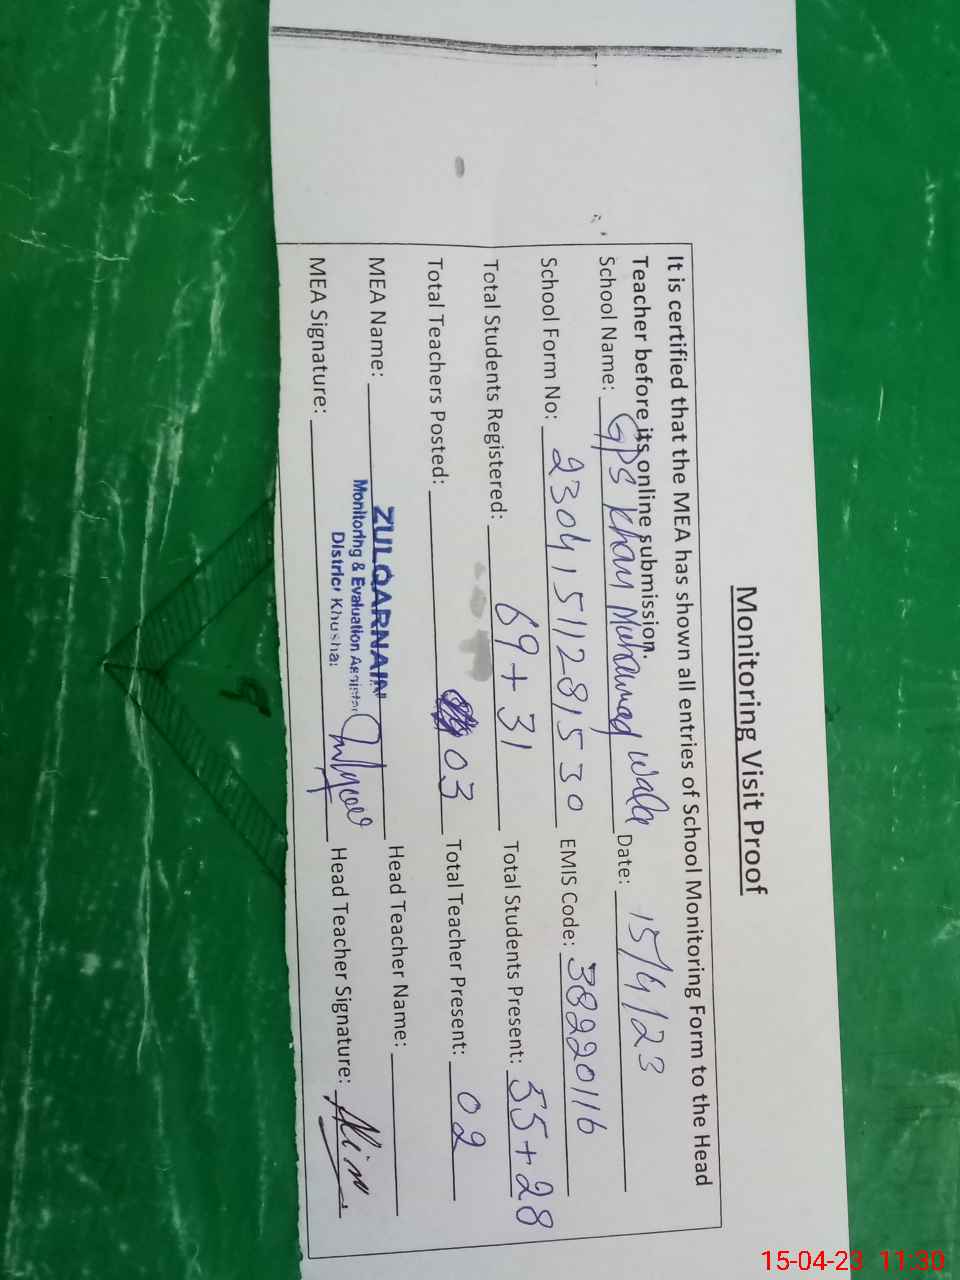 Monitoring Visit Proof
It is certified that the MEA has shown all entries of School Monitoring Form to the Head
Teacher before its online submission.
School Name: GPS Khan Muhammad Wala Date: 15/4/23
School Form No: 23041511281530 EMIS Code: 38220116
Total Students Registered: 69+31 Total Students Present: 55+28
Total Teachers Posted: 03 Total Teacher Present: 02
MEA Name: ZULQARNAIN Head Teacher Name:
Monitoring & Evaluation
District Khushab
MEA Signature: Head Teacher Signature:
15-04-23 11:30